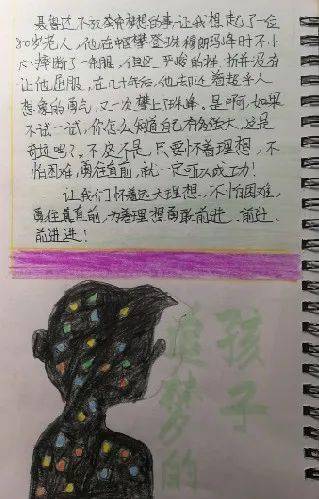 基鲁过不放弃梦想的事让我想起了一位
80岁老人，他在中国攀登珠穆朗玛峰时不小
心摔断了一条腿，但这
让他屈服，在几十年后，他
想象的勇气，又一次攀上了珠峰。是啊，如果
不试一试，你怎么知道自己有多强大，这是
奇迹吗？不，这不是，只要怀着理想，不
怕困难，勇往直前，就一定可以成功！
让我们怀着远大理想，不怕困难，
勇往直前，为着理想勇敢前进、前进、
前进进！
追梦的
孩子